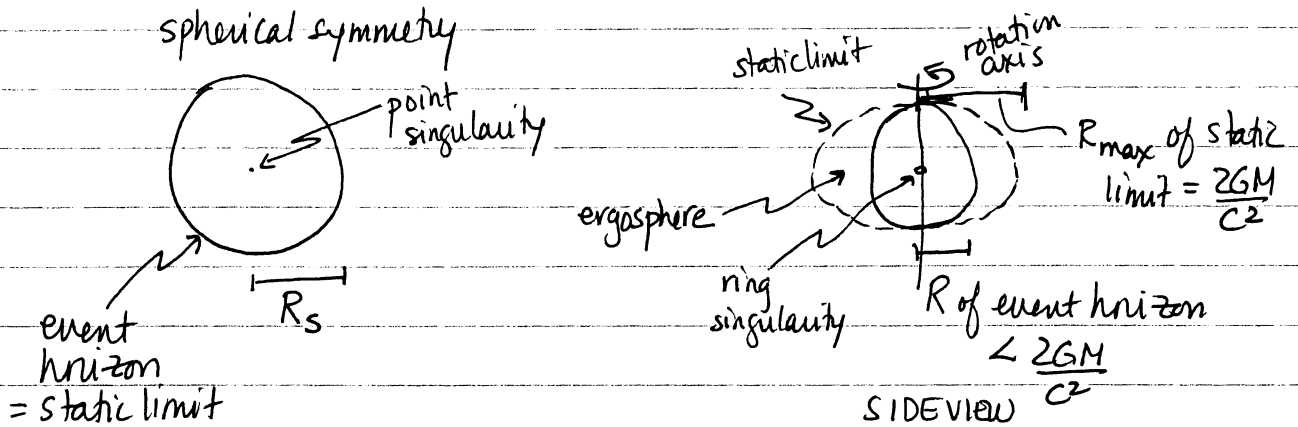 spherical symmetry
point
singularity
R_s
event
horizon
= static limit
static limit
rotation
axis
R_max of static
limit = 2GM/C²
ergosphere
ring
singularity
R of event horizon
< 2GM/C²
SIDEVIEW